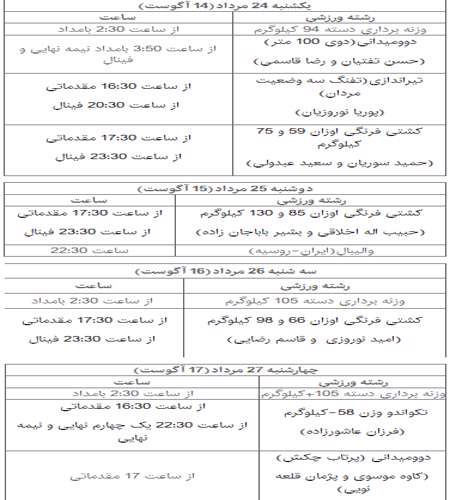 یکشنبه 24 مرداد (14 آگوست)
رشته ورزشی
ساعت
وزنه برداری دسته 94 کیلوگرم
از ساعت 2:30 بامداد
دوومیدانی(دوی 100 متر)
(حسن تفتیان و رضا قاسمی)
از ساعت 3:50 بامداد نیمه نهایی و
فینال
تیراندازی(تفنگ سه وضعیت
مردان)
(پوریا نوروزیان)
از ساعت 16:30 مقدماتی
از ساعت 20:30 فینال
کشتی فرنگی اوزان 59 و 75
کیلوگرم
(حمید سوریان و سعید عبدولی)
از ساعت 17:30 مقدماتی
از ساعت 23:30 فینال
دوشنبه 25 مرداد (15 آگوست)
رشته ورزشی
ساعت
کشتی فرنگی اوزان 85 و 130 کیلوگرم
(حبیب اله اخلاقی و بشیر باباجان زاده)
از ساعت 17:30 مقدماتی
از ساعت 23:30 فینال
والیبال(ایران-روسیه)
ساعت 22:30
سه شنبه 26 مرداد (16 آگوست)
رشته ورزشی
ساعت
وزنه برداری دسته 105 کیلوگرم
از ساعت 2:30 بامداد
کشتی فرنگی اوزان 66 و 98 کیلوگرم
(امید نوروزی و قاسم رضایی)
از ساعت 17:30 مقدماتی
از ساعت 23:30 فینال
چهارشنبه 27 مرداد (17 آگوست)
رشته ورزشی
ساعت
وزنه برداری دسته 105+کیلوگرم
از ساعت 2:30 بامداد
تکواندو وزن 58-کیلوگرم
(فرزان عاشورزاده)
از ساعت 16:30 مقدماتی
از ساعت 22:30 یک چهارم نهایی و نیمه
نهایی
دوومیدانی (پرتاب چکش)
(کاوه موسوی و پژمان قلعه
نویی)
از ساعت 17 مقدماتی